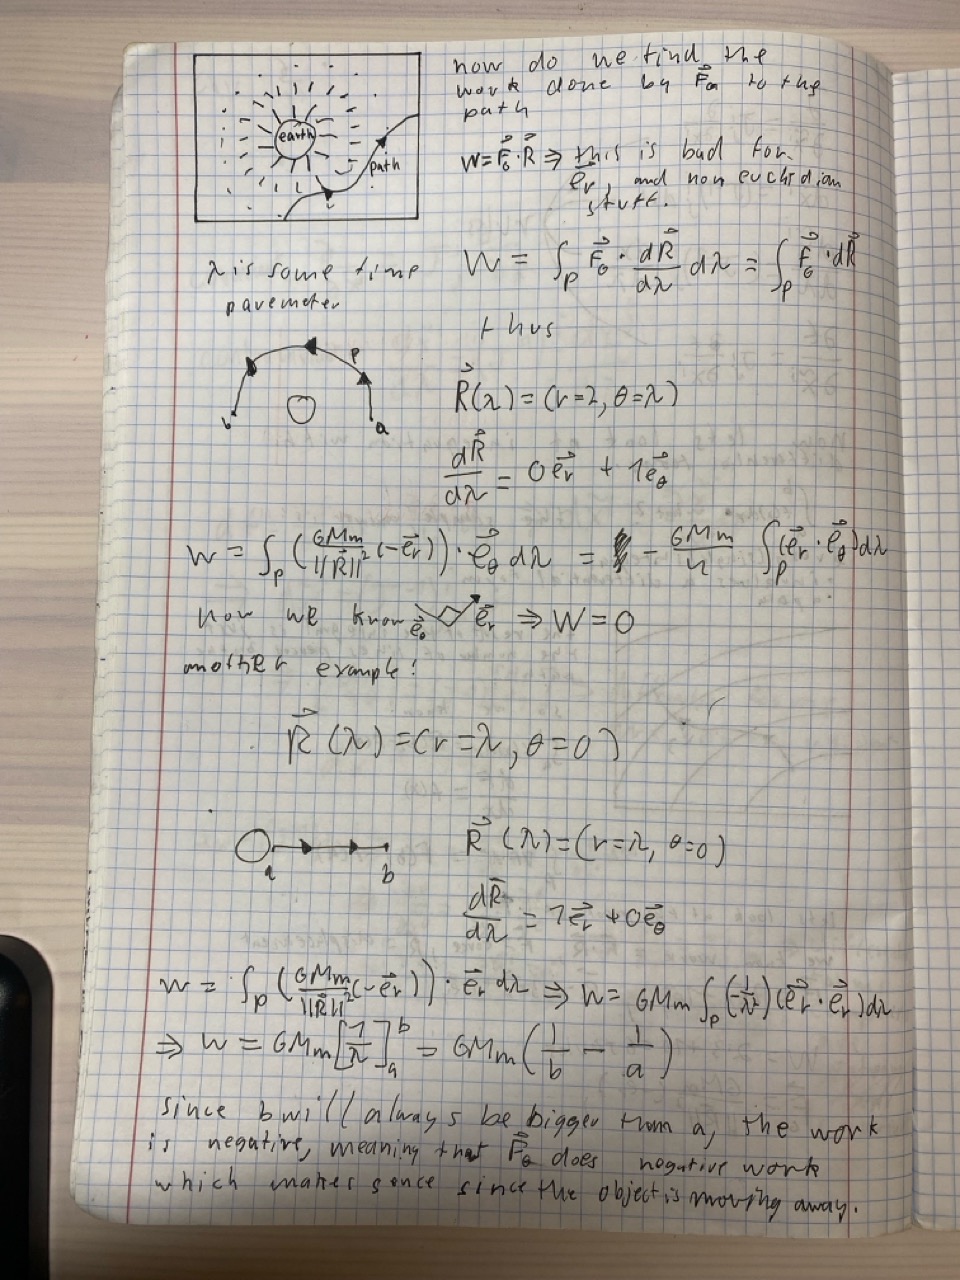 how do we find the
work done by F⃗_G to the
path
earth
path
W=F⃗_G·R⃗ ⇒ this is bad for
e⃗_r, and non euclidian
stuff.
λ is some time
parameter
W = ∫_P F⃗_G · dR⃗/dλ dλ = ∫_P F⃗_G · dR⃗
thus
P
b
a
R⃗(λ) = (r=2, θ=λ)
dR⃗/dλ = 0e⃗_r + 1e⃗_θ
W = ∫_P (GMm/||R⃗||² (-e⃗_r)) · e⃗_θ dλ = - GMm/4 ∫_P (e⃗_r · e⃗_θ) dλ
now we know e⃗_θ e⃗_r ⇒ W=0
another example:
R⃗ (λ) = (r=λ, θ=0)
a
b
R⃗ (λ) = (r=λ, θ=0)
dR⃗/dλ = 1e⃗_r + 0e⃗_θ
W = ∫_P (GMm/||R⃗||² (-e⃗_r)) · e⃗_r dλ ⇒ W = GMm ∫_P (-1/λ²) (e⃗_r · e⃗_r) dλ
⇒ W = GMm [1/λ]_a^b = GMm (1/b - 1/a)
since b will always be bigger than a, the work
is negative, meaning that F⃗_G does negative work
which makes sence since the object is moving away.